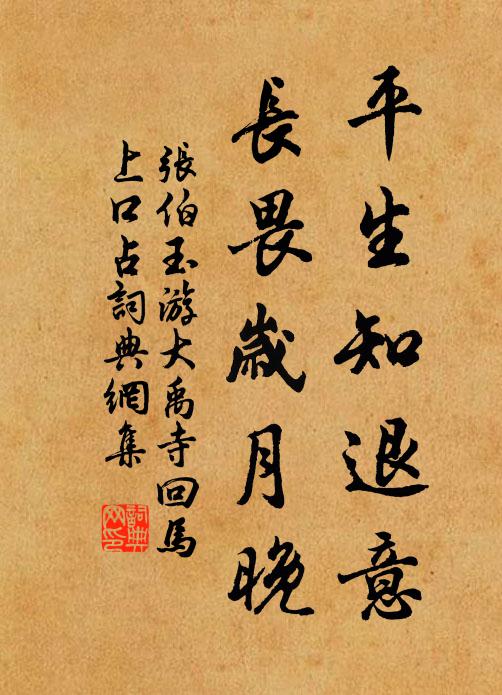 平生知退意
長畏歲月晚
張伯玉游大禹寺回馬
上口占詞典網集
詞典網印